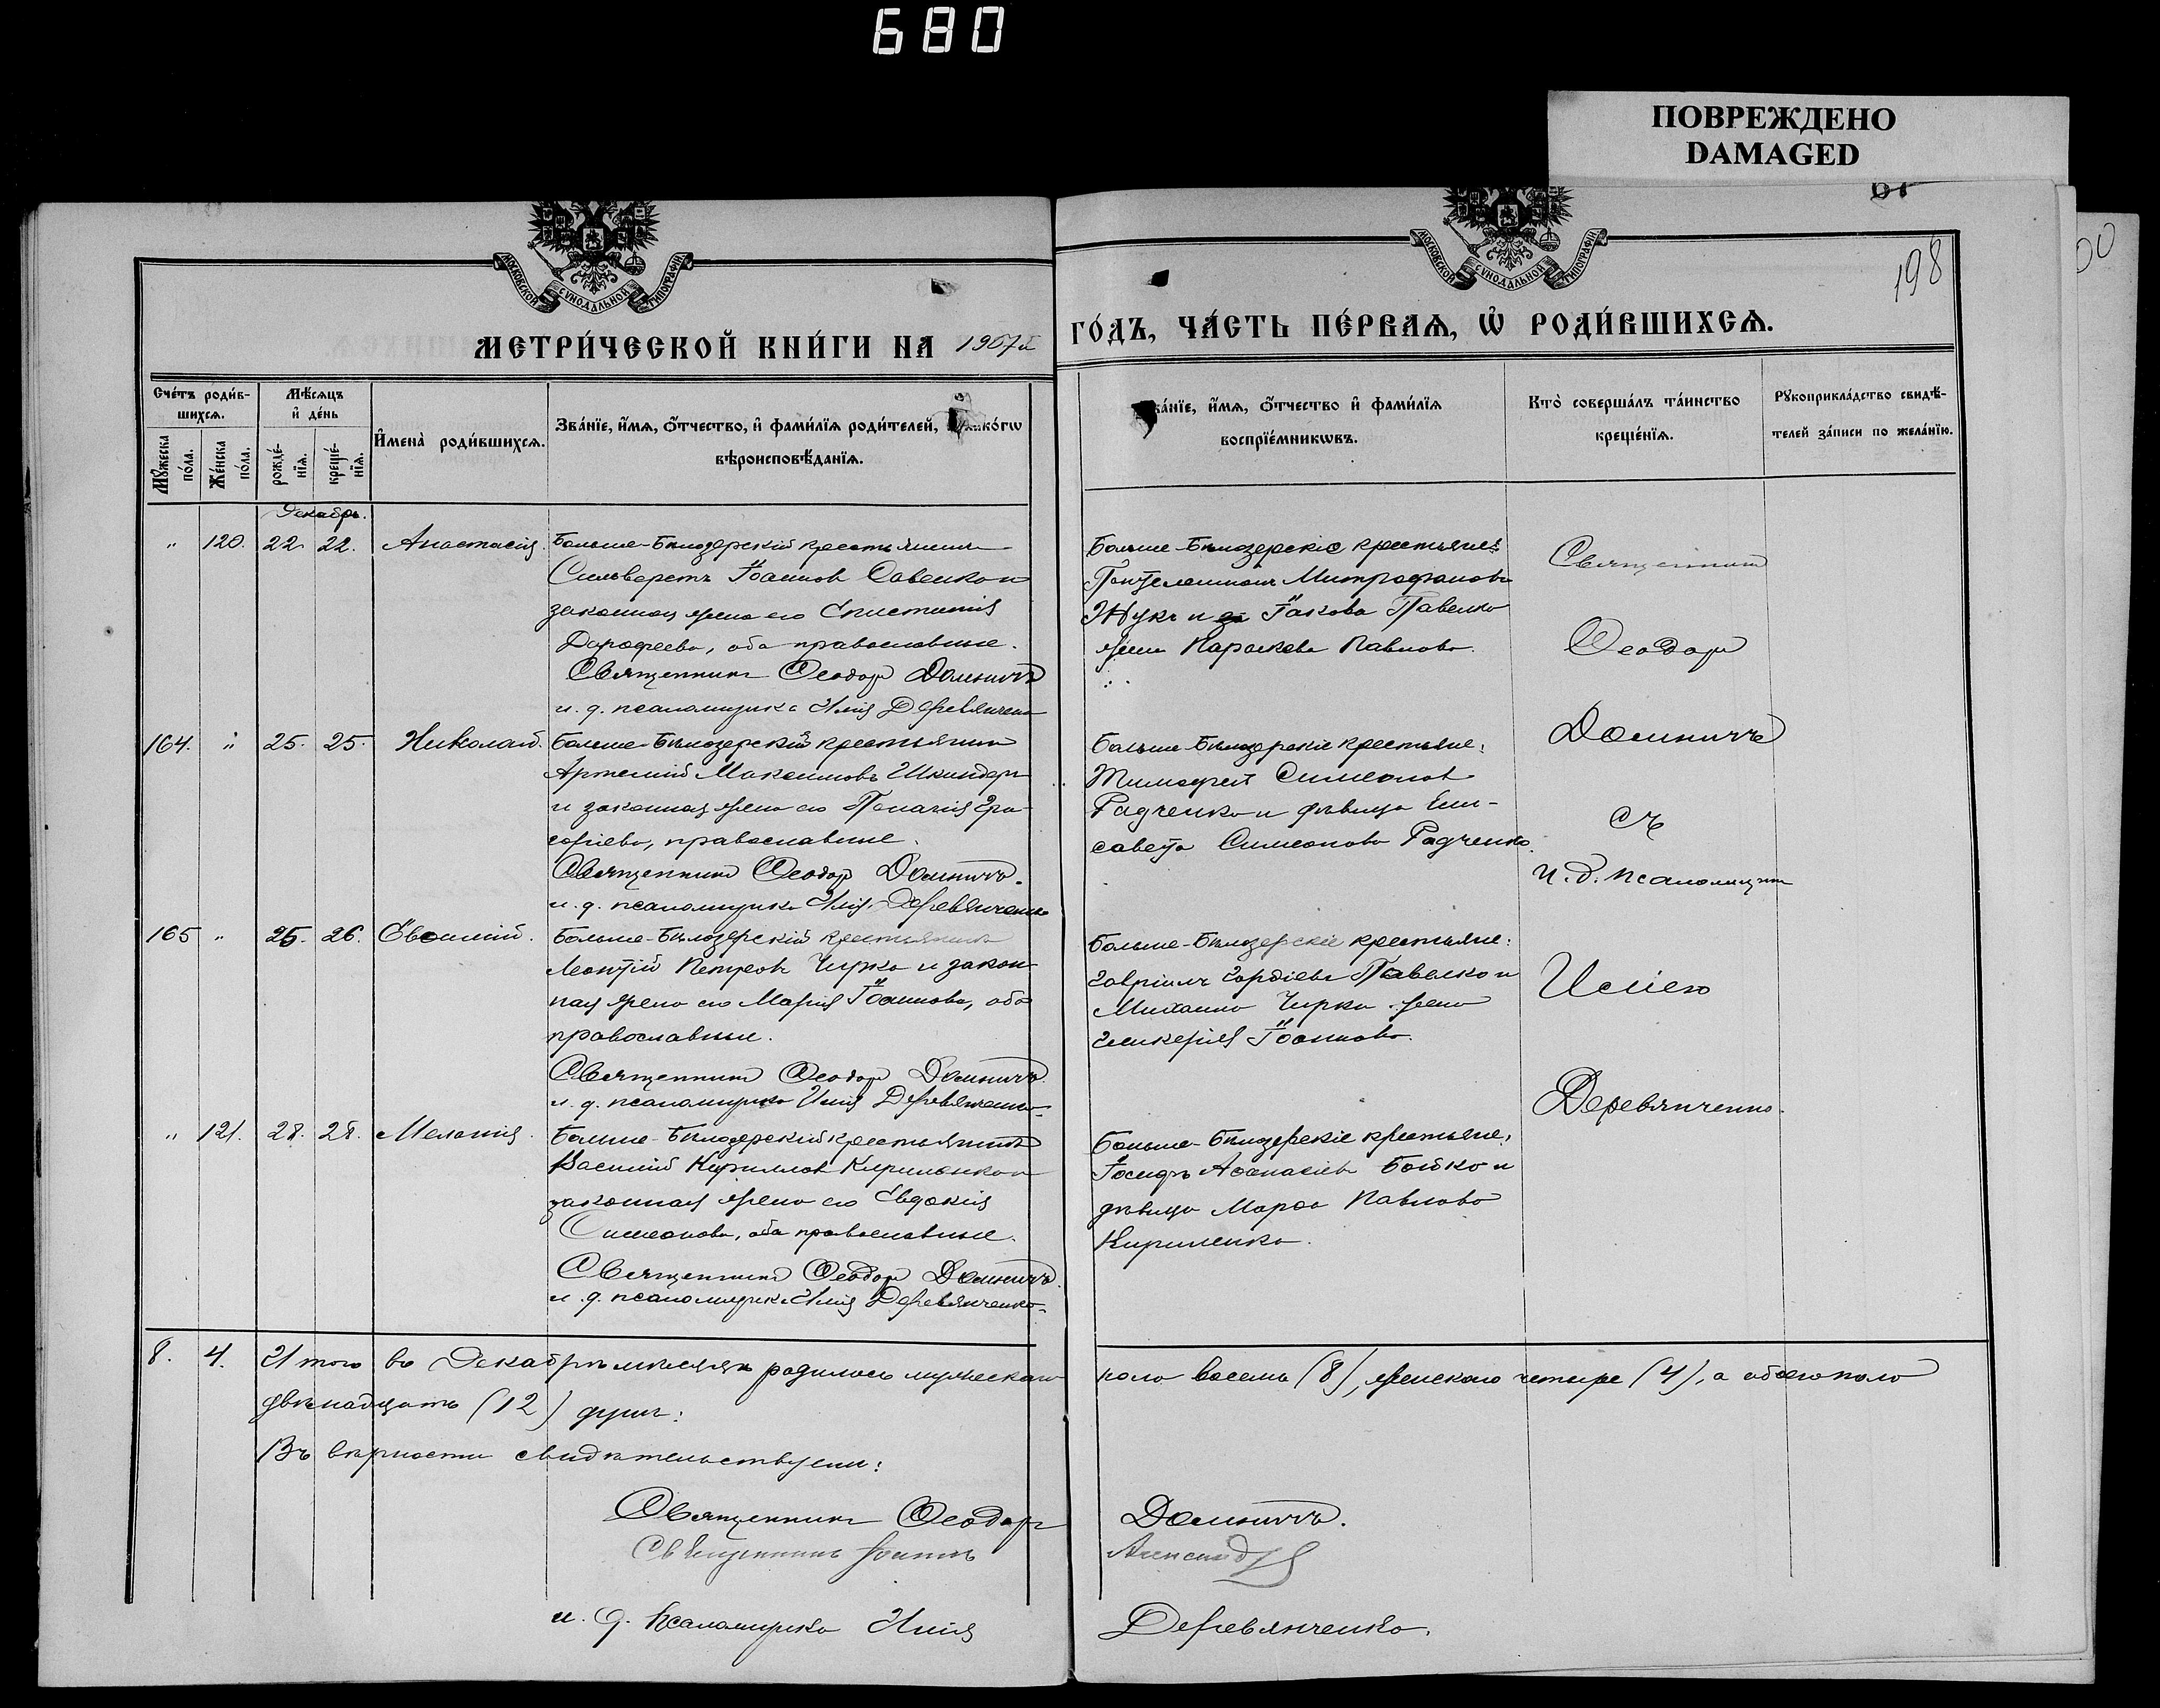 680
ПОВРЕЖДЕНО
DAMAGED
198
МОСКОВСКОЙ СѴНОДАЛЬНОЙ ТИПОГРАФІИ
МОСКОВСКОЙ СѴНОДАЛЬНОЙ ТИПОГРАФІИ
МЕТРИ́ЧЕСКОЙ КНИ́ГИ НА 1907й
ГО́ДЪ, ЧА́СТЬ ПЕ́РВАѦ, Ѡ҆ РОДИ́ВШИХСѦ.
Сче́тъ роди́в-
шихсѧ.
Мꙋжеска по́ла.
Же́нска по́ла.
Мѣ́сѧцъ
и҆ де́нь
рожде́-
нїѧ.
креще́-
нїѧ.
И҆мена̀ роди́вшихсѧ.
Зва́нїе, и҆́мѧ, ѻ҆́тчество, и҆ фами́лїѧ роди́телей,
вѣроисповѣ́данїѧ.
и҆́мѧ, ѻ҆́тчество и҆ фами́лїѧ
воспрїе́мникѡвъ.
Кто̀ соверша́лъ та́инство
креще́нїѧ.
Рꙋкоприкла́дство свидѣ́-
телей за́писи по жела́нїю.
Декабрь.
" 120. 22. 22. Анастасія.
Больше-Бѣлозерскій крестьянинъ
Сильверстъ Іоанновъ Савенко и
законная жена его
Дорофеева, оба православные.
Священникъ Ѳеодоръ Домничъ
и. д. псаломщика Илія Деревянченко
Больше-Бѣлозерскіе крестьяне:
Пантелеимонъ Митрофановъ
Жукъ и Іакова Павелко
жена Параскева Павлова.
164. " 25. 25. Николай.
Больше-Бѣлозерскій крестьянинъ
Артемій Максимовъ Шкиндеръ
и законная жена его Пелагія Гри-
горіева, православные.
Священникъ Ѳеодоръ Домничъ.
и. д. псаломщика Илія Деревянченко
Больше-Бѣлозерскіе крестьяне:
Тимофей Симеоновъ
Радченко и дѣвица Ели-
савета Симеонова Радченко.
165 " 25. 26. Евѳимій.
Больше-Бѣлозерскій крестьянинъ
Леонтій Петровъ Чирка и закон-
ная жена его Марія Іоаннова, оба
православные.
Священникъ Ѳеодоръ Домничъ
и. д. псаломщика Илія Деревянченко
Больше-Бѣлозерскіе крестьяне:
Гавріилъ Гордіевъ Павелко и
Михаила Чирки жена
Гликерія Іоаннова.
" 121. 28. 28. Меланія.
Больше-Бѣлозерскій крестьянинъ
Василій Кирилловъ Кириленко и
законная жена его Евдокія
Симеонова, оба православные.
Священникъ Ѳеодоръ Домничъ.
и. д. псаломщика Илія Деревянченко
Больше-Бѣлозерскіе крестьяне:
Іосифъ Аѳанасіевъ Бойко и
дѣвица Марѳа Павлова
Кириленко.
Священникъ
Ѳеодоръ
Домничъ
съ
и. д. псаломщика
Иліею
Деревянченко.
8. 4. Итого въ Декабрѣ мѣсяцѣ родилось мужескаго пола восемь (8), женскаго четыре (4), а обоего пола
двѣнадцать (12) душъ:
Въ вѣрности свидѣтельствуемъ:
Священникъ Ѳеодоръ Домничъ.
Священникъ Іоаннъ
и. д. псаломщика Илія Деревянченко.